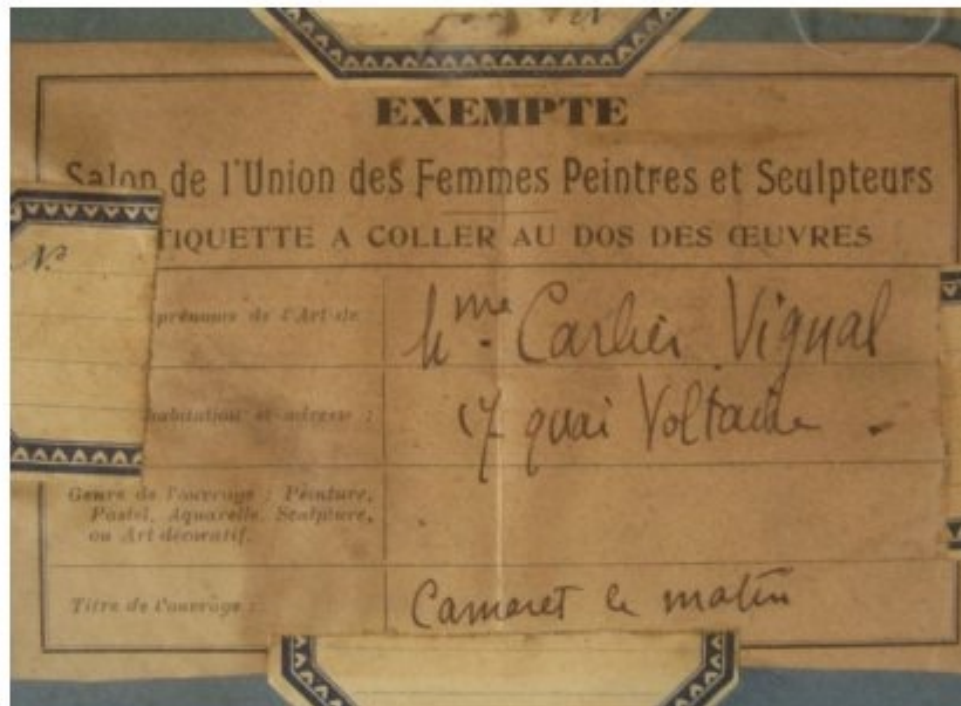 EXEMPTE
Salon de l'Union des Femmes Peintres et Sculpteurs
TIQUETTE A COLLER AU DOS DES ŒUVRES
No
prénoms de l'Artiste
Mme Carlier Vignal
habitation et adresse :
17 quai Voltaire -
Genre de l'ouvrage : Peinture,
Pastel, Aquarelle, Sculpture,
ou Art décoratif.
Titre de l'ouvrage :
Camaret le matin